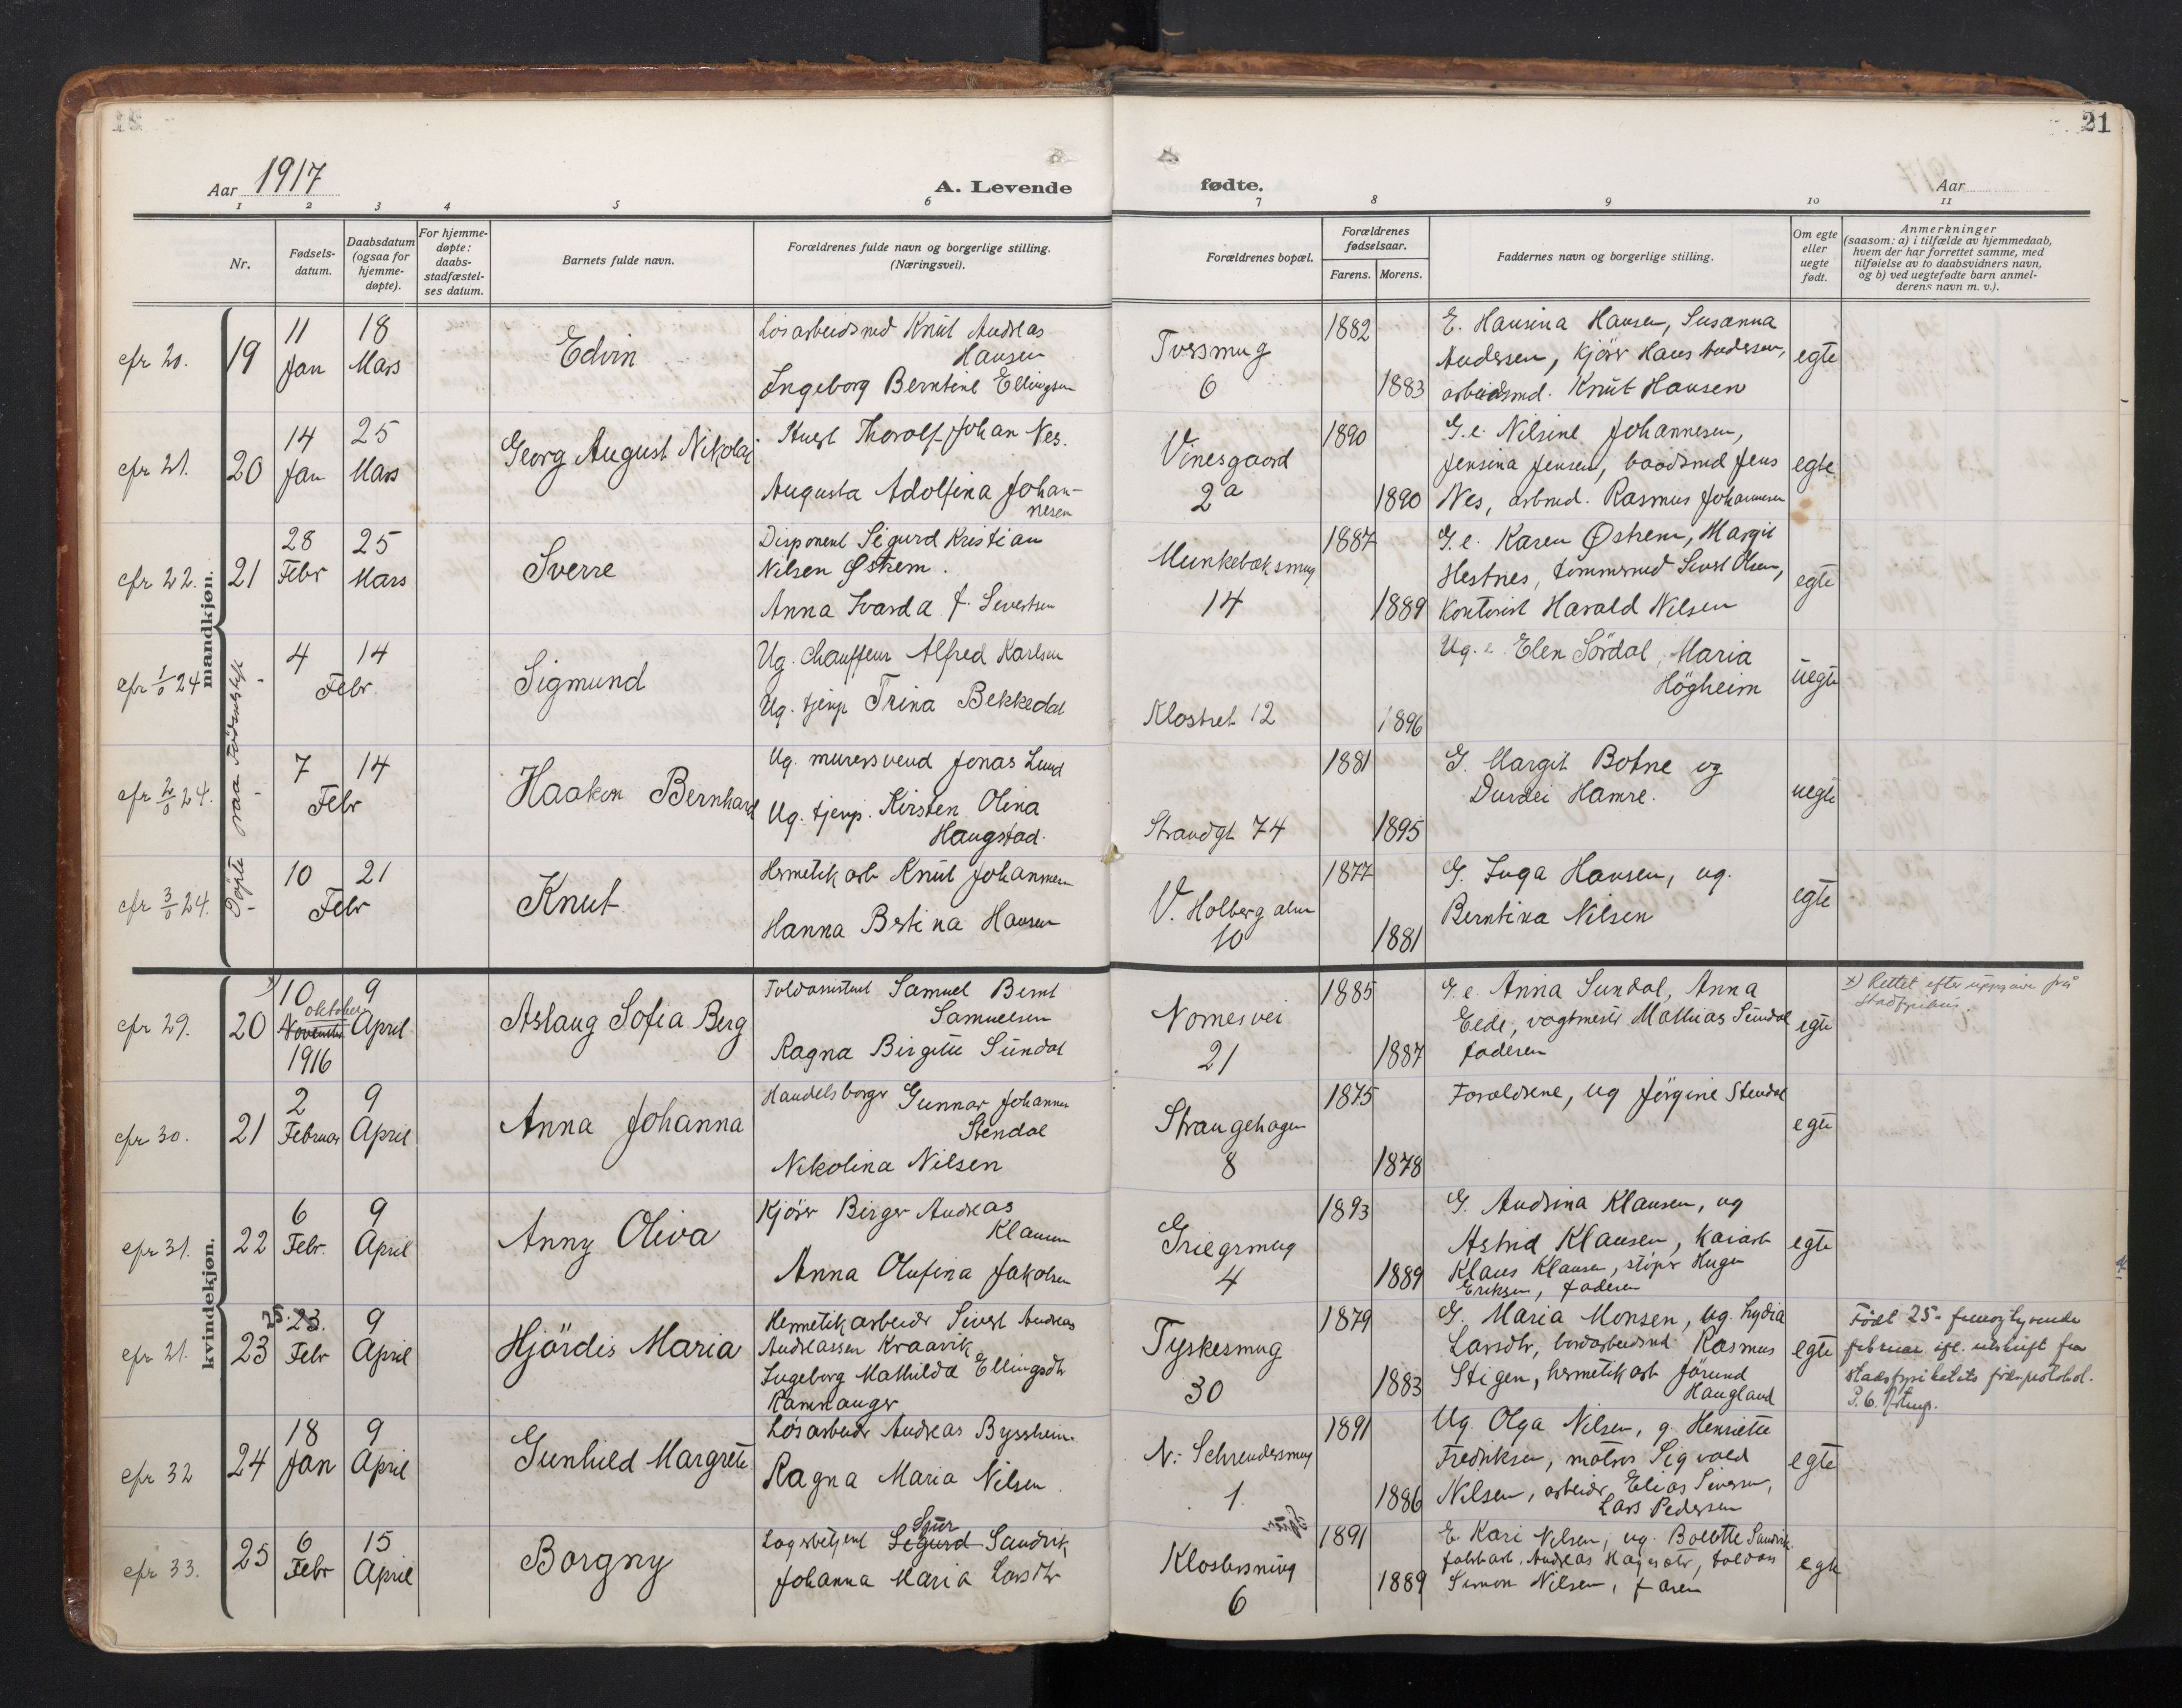 21
Aar 1917
A. Levende
fødte.
Aar
1 2 3 4 5 6 7 8 9 10 11
Nr.
Fødsels-
datum.
Daabsdatum
(ogsaa for
hjemme-
døpte).
For hjemme-
døpte:
daabs-
stadfæstel-
ses datum.
Barnets fulde navn.
Forældrenes fulde navn og borgerlige stilling.
(Næringsvei).
Forældrenes bopæl.
Forældrenes
fødselsaar.
Farens. Morens.
Faddernes navn og borgerlige stilling.
Om egte
eller
uegte
født.
Anmerkninger
(saasom: a) i tilfælde av hjemmedaab,
hvem der har forrettet samme, med
tilføielse av to daabsvidners navn,
og b) ved uegtefødte barn anmel-
derens navn m. v.).
mandkjøn.
Døpte paa Fødselsstift
cfr 20.
19
11
Jan
18
Mars
Edvin
Løsarbeidsmd Knut Andreas
Hansen
Ingeborg Berntine Ellingsen
Tversmug
6
1882
1883
E. Hansina Hansen, Susanna
Andersen, kjörer Hans Andersen,
arbeidsmd. Knut Hansen
egte
cfr 21.
20
14
Jan
25
Mars
Georg August Nikolai
Stuert Thoralf Johan Nes.
Augusta Adolfina Johan-
nesen
Vinesgaard
2a
1890
1890
G.e. Nilsine Johannesen,
Jensina Jensen, baadsmd Jens
Nes, arbmd. Rasmus Johannesen
egte
cfr 22.
21
28
Febr
25
Mars
Sverre
Disponent Sigurd Kristian
Nilsen Østrem.
Anna Svarda f. Severtsen
Munkebæksmug
14
1887
1889
G.e. Karen Østrem, Margit
Hestnes, tømmermd Sivert Olsen,
Kontorist Harald Nilsen
egte
cfr 1/0 24
4
14
Febr.
Sigmund
Ug. chauffeur Alfred Karlsen
Ug. tjenp Trina Bekkedal
Klostret 12
1896
Ug. e. Elen Sördal, Maria
Högheim
uegte
cfr 2/0 24.
7
14
Febr
Haakon Bernhard
Ug. murersvend Jonas Lund
Ug. tjenp. Kirsten Olina
Haugstad.
Strandgt 74
1881
1895
G. Margit Botne og
Durdei Hamre.
uegte
cfr 3/0 24.
10
21
Febr
Knut
Hermetikarb Knut Johannesen
Hanna Bertina Hansen
V. Holberg alm
10
1877
1881
G. Inga Hansen, ug.
Berntina Nilsen
egte
kvindekjøn.
cfr 29.
20
x) 10
oktober
November
1916
9
April
Aslaug Sofia Berg
Toldassistent Samuel Bernt
Samuelsen
Ragna Birgitte Sundal
Nornesvei
21
1885
1887
G.e. Anna Sundal, Anna
Eede, vagtmester Mathias Sundal
faderen
egte
x) Rettet efter uppgave frå
Stadfysikus.
cfr 30.
21
2
Februar
9
April
Anna Johanna
Handelsborger Gunnar Johannes
Stendal
Nikolina Nilsen
Strangehagen
8
1875
1878
Foreldrene, ug Jörgine Stendal
egte
cfr 31.
22
6
Febr.
9
April
Anny Oliva
Kjörer Birger Andreas
Klausen
Anna Olufina Jakobsen
Griegsmug
4
1893
1889
G. Andrina Klausen, ug
Astrid Klausen, kaiarb
Klaus Klausen, støper Hugo
Eriksen, faderen
egte
cfr 21.
23
25. 23.
Febr
9
April
Hjördis Maria
Hermetikarbeider Sivert Andreas
Andreassen Kraavik
Ingeborg Mathilda Ellingsdtr
Ramnanger
Tyskesmug
30
1879
1883
G. Maria Monsen, ug. Lydia
Larsdtr, bordarbeidsmd Rasmus
Stigen, hermetikarb Jörund
Haugland
egte
Født 25- femogtyvende
februar ifl. utskrift fra
stadsfysikatets fødsprotokol.
cfr 32
24
18
Jan
9
April
Gunhild Margrete
Løsarbeider Andreas Byssheim
Ragna Maria Nilsen
N. Schreudersmug
1.
1891
1886
Ug. Olga Nilsen, g. Henriette
Fredriksen, matros Sigvald
Nilsen, arbeider Elias Siversen,
Lars Pedersen
egte
cfr 33.
25
6
Febr
15
April
Borgny
Lagerbetjent Sigurd Sandvik
Sjur
Johanna Maria Larsdtr
Klostersmug
6
1891
1889
E Kari Nilsen, ug. Bolette Sandvik
fabrkarb. Andreas
Simon Nilsen, faren
egte